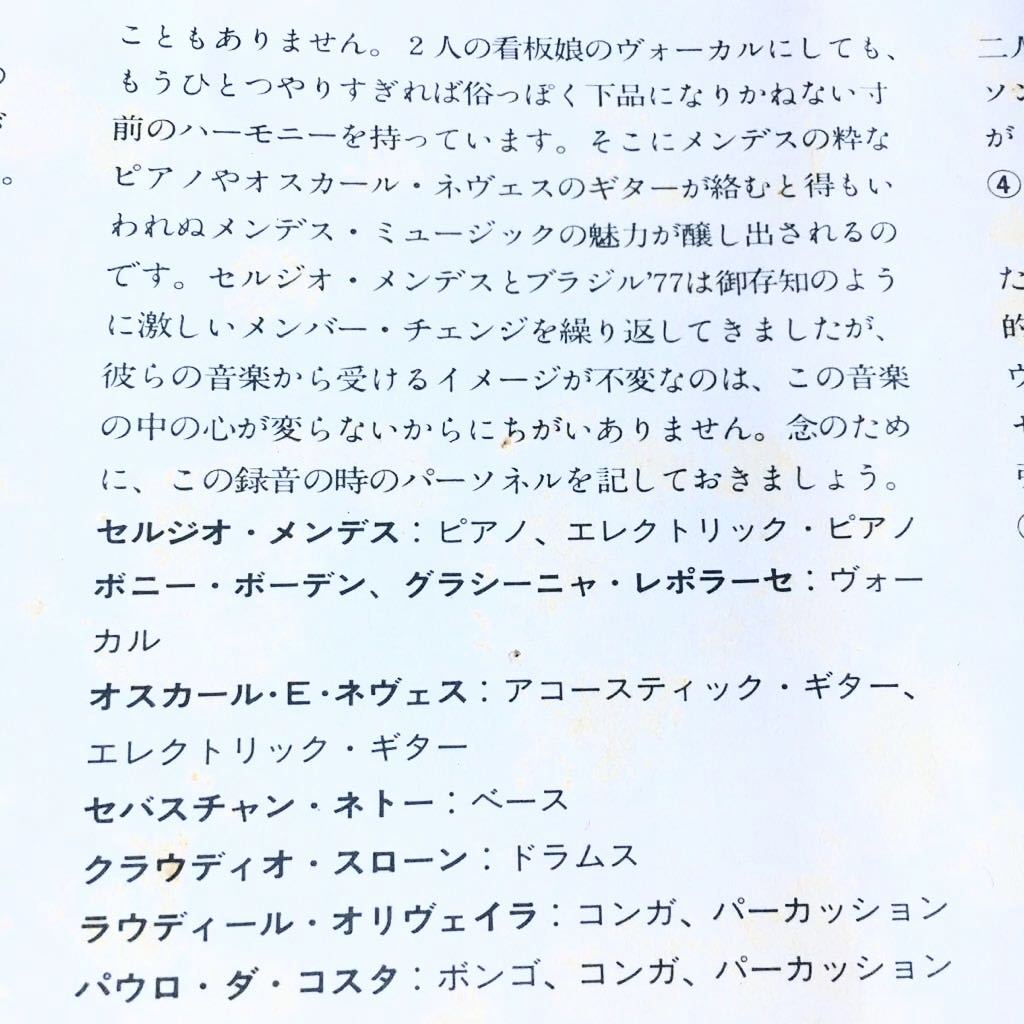 こともありません。２人の看板娘のヴォーカルにしても、
もうひとつやりすぎれば俗っぽく下品になりかねない寸
前のハーモニーを持っています。そこにメンデスの粋な
ピアノやオスカール・ネヴェスのギターが絡むと得もい
われぬメンデス・ミュージックの魅力が醸し出されるの
です。セルジオ・メンデスとブラジル'77は御存知のよう
に激しいメンバー・チェンジを繰り返してきましたが、
彼らの音楽から受けるイメージが不変なのは、この音楽
の中の心が変らないからにちがいありません。念のため
に、この録音の時のパーソネルを記しておきましょう。
セルジオ・メンデス：ピアノ、エレクトリック・ピアノ
ボニー・ボーデン、グラシーニャ・レポラーセ：ヴォー
カル
オスカール・E・ネヴェス：アコースティック・ギター、
エレクトリック・ギター
セバスチャン・ネトー：ベース
クラウディオ・スローン：ドラムス
ラウディール・オリヴェイラ：コンガ、パーカッション
パウロ・ダ・コスタ：ボンゴ、コンガ、パーカッション
ソ
が
④
た
的